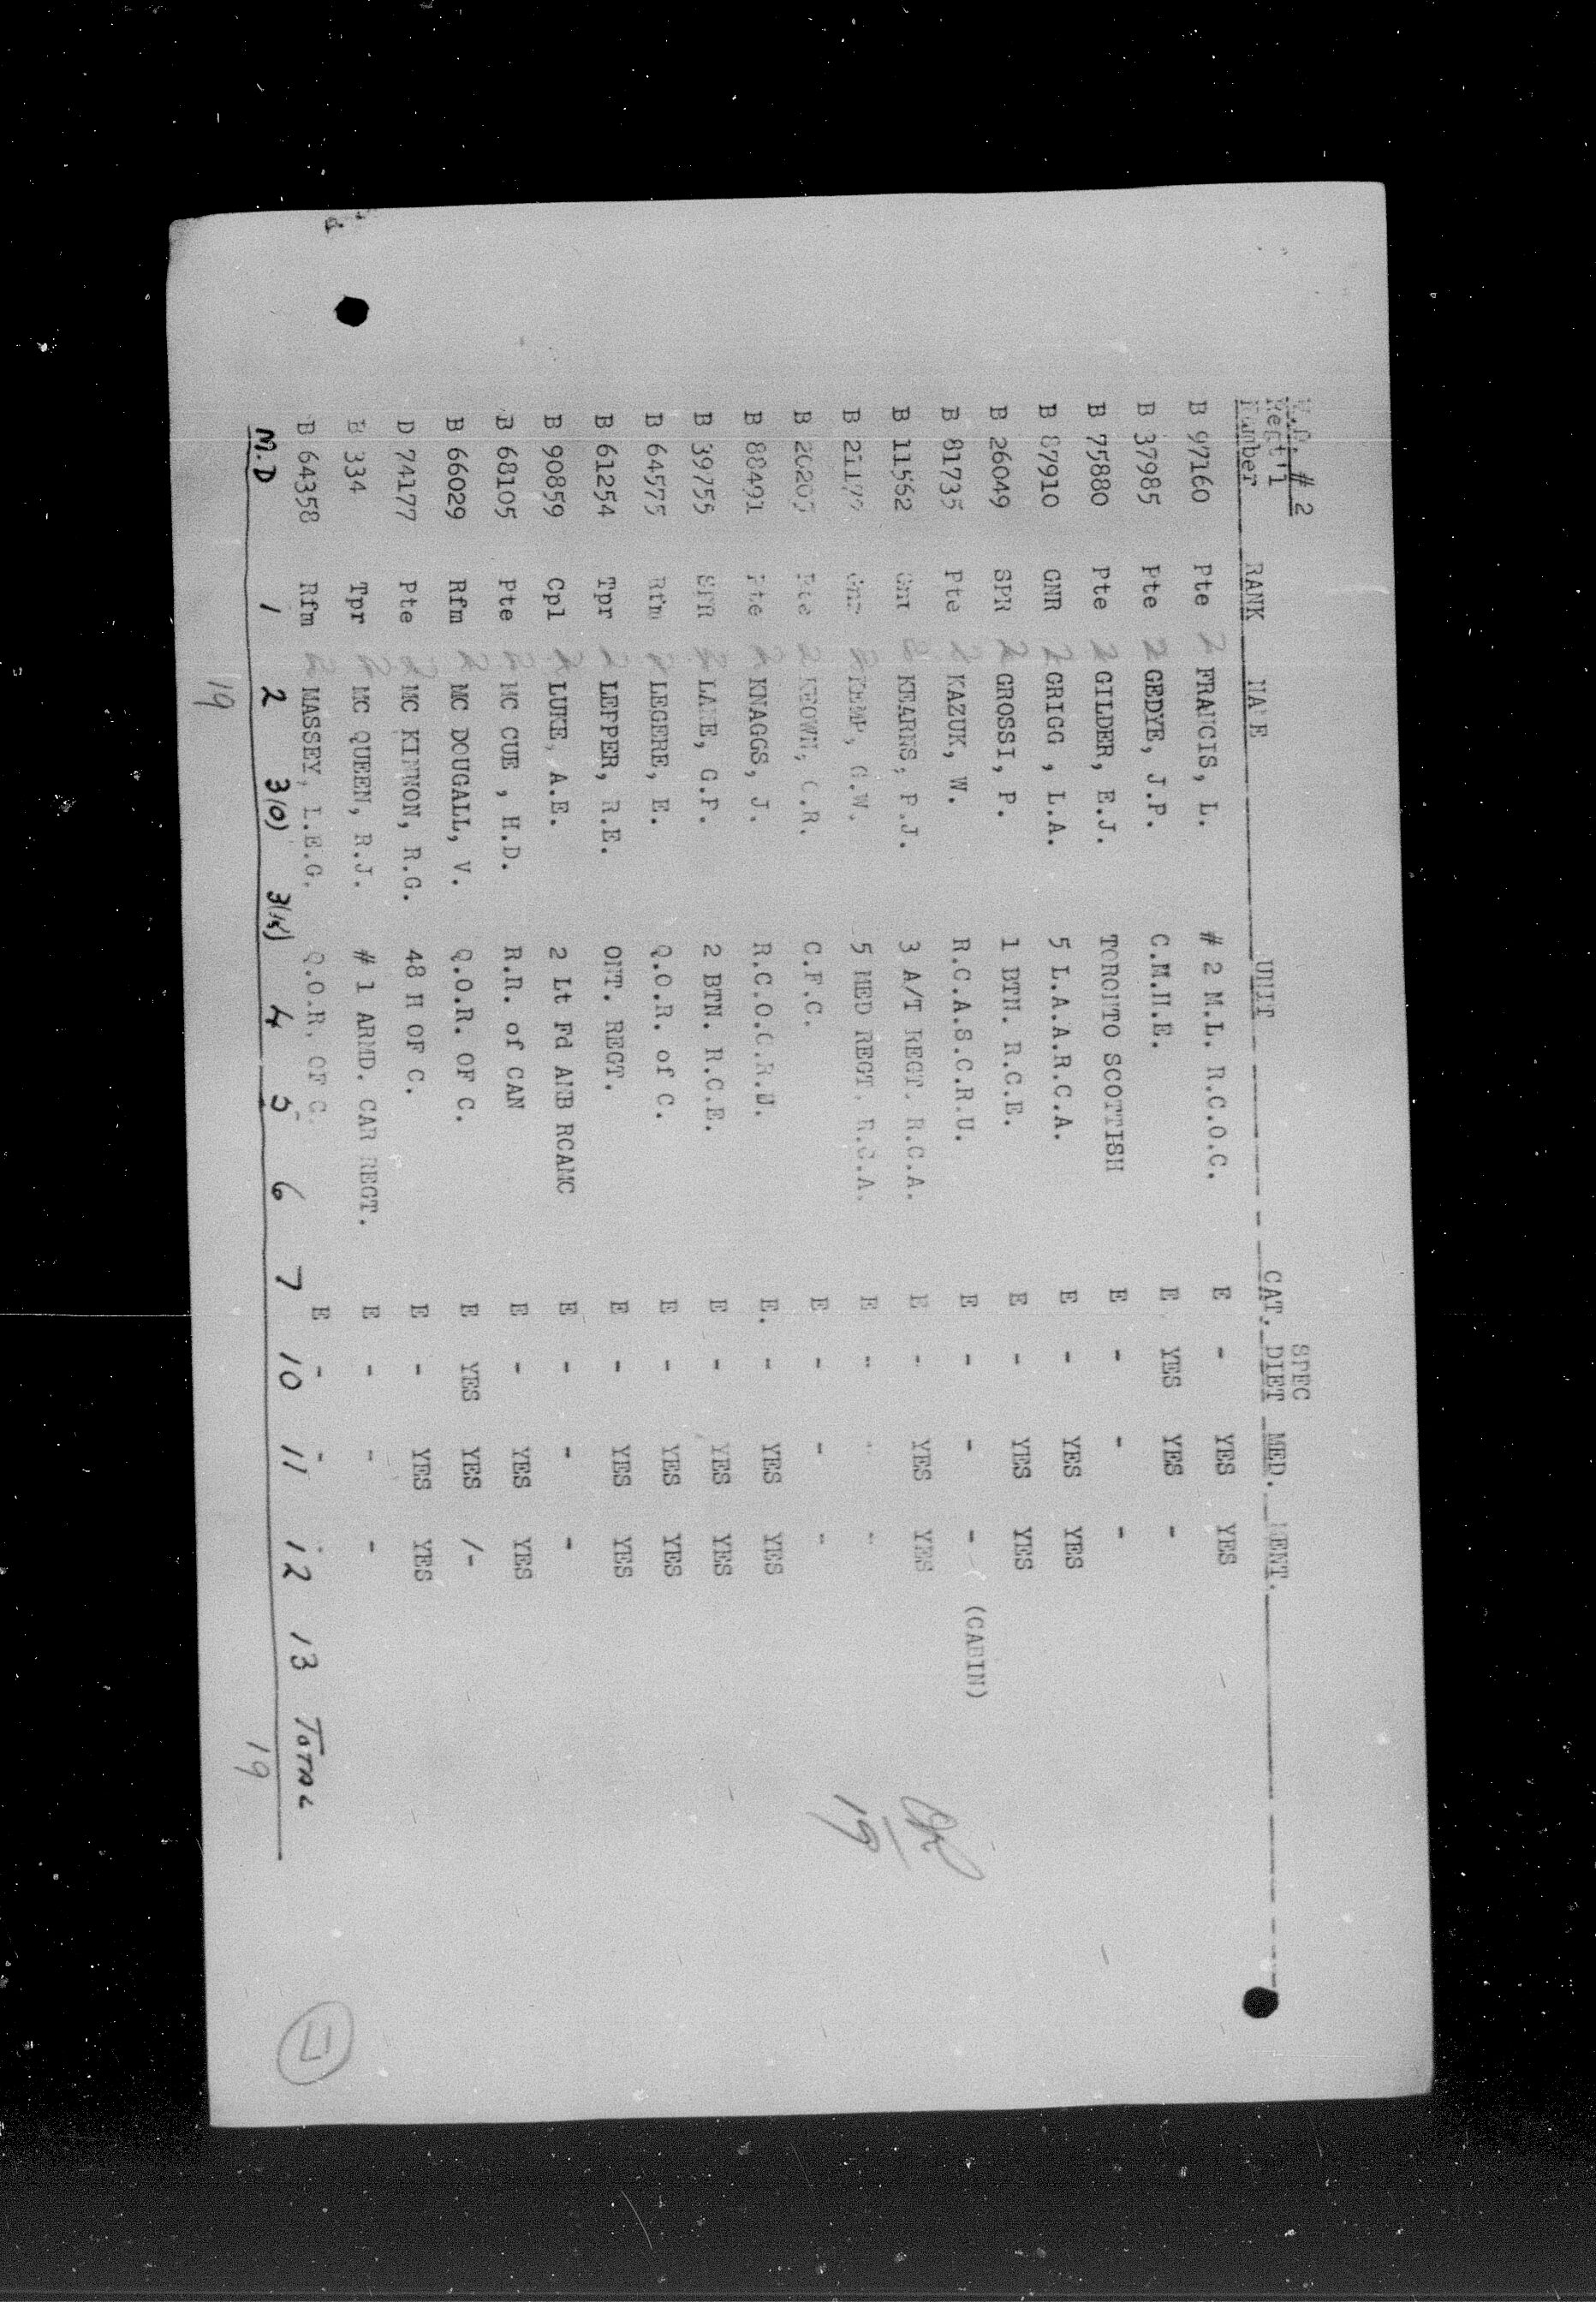 M.D. # 2
Reg't'l SPEC
Number RANK NAME UNIT CAT. DIET MED. MENT.
B 97160 Pte 2 FRANCIS, L. # 2 M.L. R.C.O.C. E - YES YES
B 37985 Pte 2 GEDYE, J.P. C.M.H.E. E YES YES -
B 75880 Pte 2 GILDER, E.J. TORONTO SCOTTISH E - - -
B 87910 GNR 2 GRIGG , L.A. 5 L.A.A.R.C.A. E - YES YES
B 26049 SPR 2 GROSSI, P. 1 BTN. R.C.E. E - YES YES
B 81735 Pte 2 KAZUK, W. R.C.A.S.C.R.U. E - - - (CABIN)
B 11552 Gnr 2 KEARNS, P.J. 3 A/T REGT. R.C.A. E - YES YES
B Gnr 2 KEMP, G.W. 5 MED REGT. R.C.A. E - - -
B Pte 2 KEOWN, C.R. C.F.C. E - - -
B 88491 Pte 2 KNAGGS, J. R.C.O.C.R.U. E. - YES YES
B 39755 SPR 2 LANE, G.F. 2 BTN. R.C.E. E - YES YES
B 64575 Rfm 2 LEGERE, E. Q.O.R. of C. E - YES YES
B 61254 Tpr 2 LEPPER, R.E. ONT. REGT. E - YES YES
B 90859 Cpl 2 LUKE, A.E. 2 Lt Fd AMB RCAMC E - - -
B 68105 Pte 2 MC CUE , H.D. R.R. of CAN E - YES YES
B 66029 Rfm 2 MC DOUGALL, V. Q.O.R. OF C. E YES YES /-
D 74177 Pte 2 MC KINNON, R.G. 48 H OF C. E - YES YES
B 334 Tpr 2 MC QUEEN, R.J. # 1 ARMD. CAR REGT. E - - -
B 64358 Rfm 2 MASSEY, I.E.G. Q.O.R. OF C. E - - -
M.D 1 2 3(O) 3(K) 4 5 6 7 10 11 12 13 TOTAL
19 19
19
17